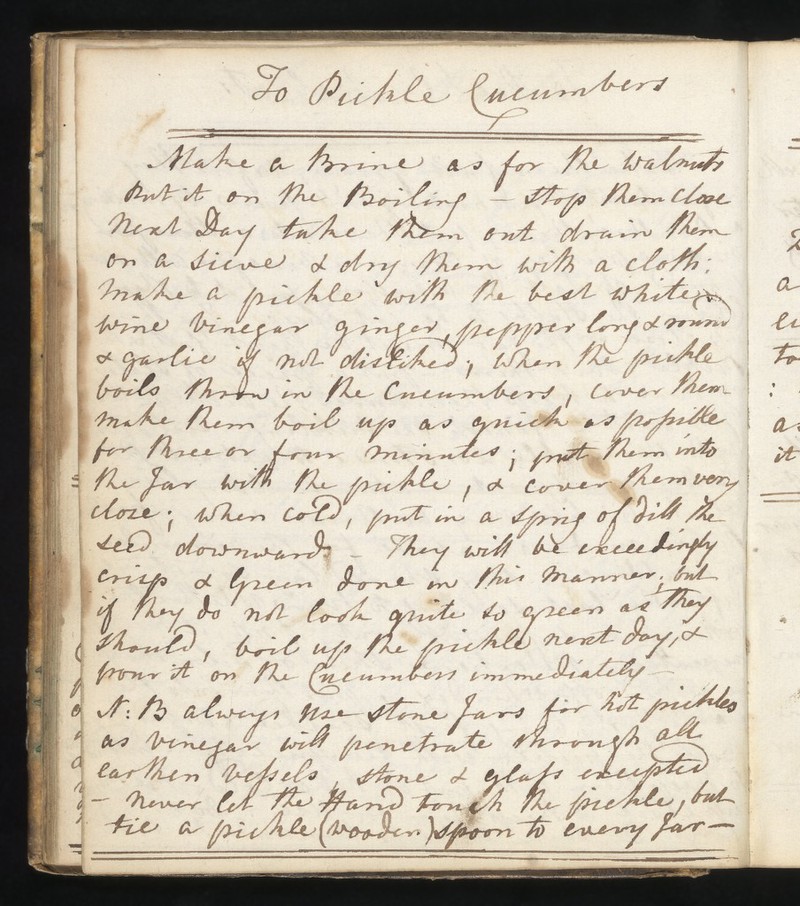 To Pickle Cucumbers
Make a Brine as for the walnuts
Put it on the Boiling – stop them close
Next Day take them out drain them
on a Sieve & dry them with a cloth:
make a pickle with the best white
wine vinegar ginger, pepper long & round
& garlic if not disliked; when the pickle
boils throw in the Cucumbers, cover them
make them boil up as quick as possible
for three or four minutes; put them into
the Jar with the pickle, & cover them very
close; when cold, put in a sprig of dill the
seed downwards – They will be exceedingly
crisp & Green done in this manner; but
if they do not look quite so green as they
should, boil up the pickle next day, &
pour it on the Cucumbers immediately –
N:B always use stone Jars for hot pickles
as vinegar will penetrate through all
earthen vessels, stone & glass excepted
– never let the Hand touch the pickle, but
tie a pickle (wooden) spoon to every Jar –
a
to
:
as
it